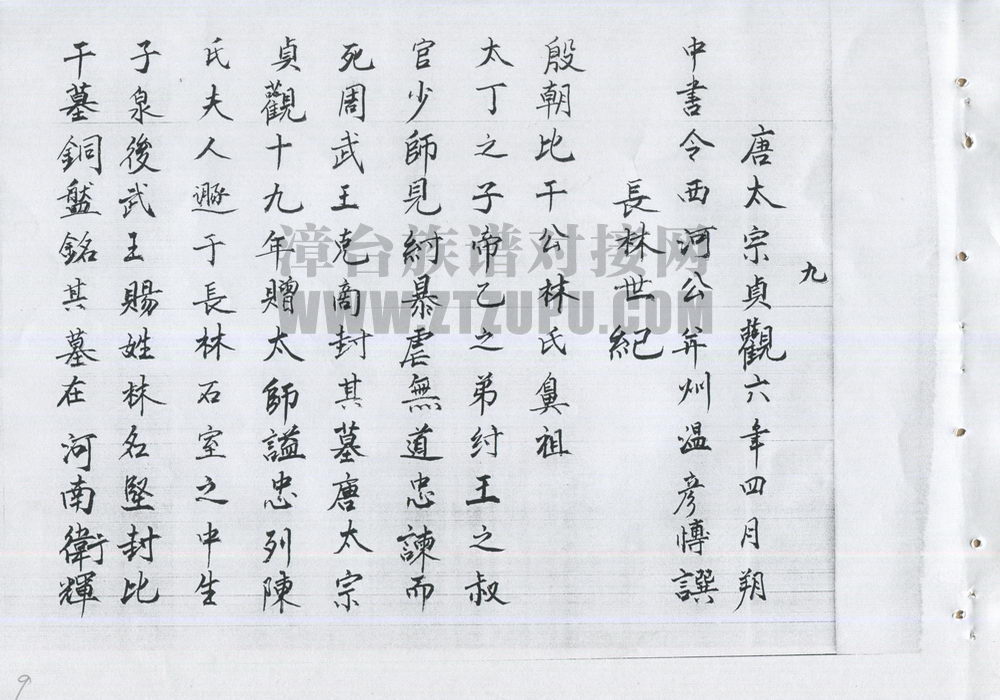 九
唐太宗貞觀六年四月朔
中書令西河公并州溫彥愽譔
長林世紀
殷朝比干公林氏鼻祖
太丁之子帝乙之弟紂王之叔
官少師見紂暴虐無道忠諫而
死周武王克商封其墓唐太宗
貞觀十九年贈太師謚忠列陳
氏夫人遯于長林石室之中生
子泉後武王賜姓林名堅封比
干墓銅盤銘其墓在河南衛輝
漳台族谱对接网
WWW.ZTZUPU.COM
9